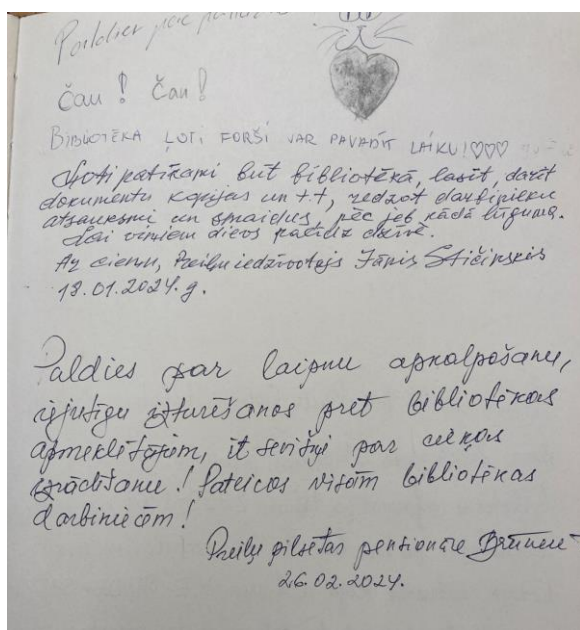 Paldies par
Čau! Čau!
BIBLIOTĒKA ĻOTI FORŠI VAR PAVADĪT LAIKU!♡♡♡
Ļoti patīkami būt bibliotēkā, lasīt, darīt
dokumentu kopijas un t.t, redzot darbinieku
atsauksmi un smaidus, pēc jeb kāda lūguma.
Lai viņiem dievs palīdz darbā.
Ar cieņu, Preiļu iedzīvotājs Jānis Stičinskis
18.01.2024.g.
Paldies par laipnu apkalpošanu,
izjutīgu izturēšanos pret bibliotēkas
apmeklētājiem, it sevišķi par cieņas
izrādīšanu! Pateicos visām bibliotēkas
darbiniecēm!
Preiļu pilsētas pensionāre
26.02.2024.